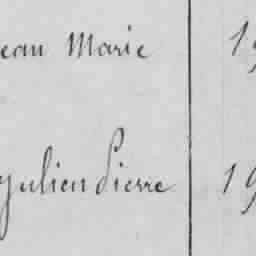 ean Marie 19
Julien Pierre 19